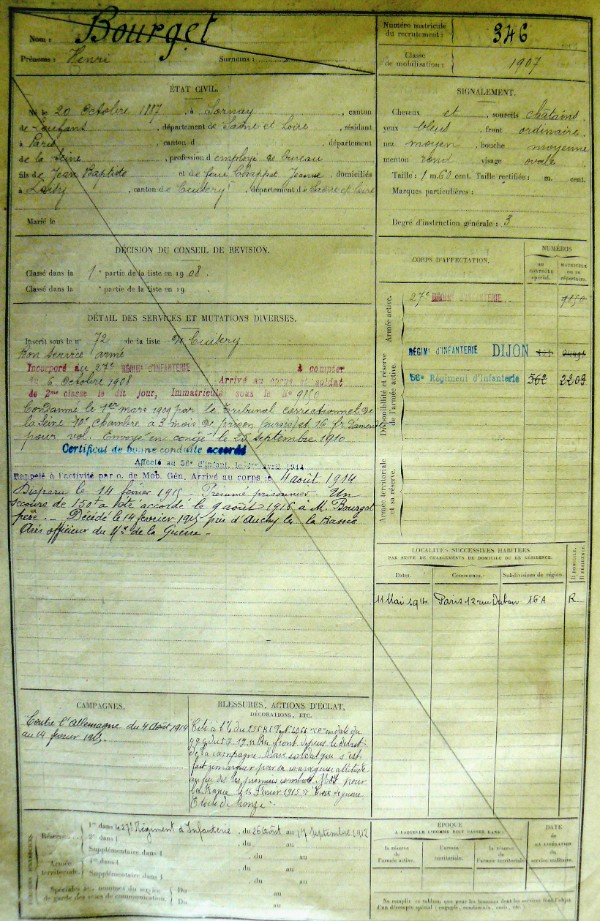 Nom : Bourget
Prénoms : Henri Surnoms :
Numéro matricule
du recrutement : 346
Classe
de mobilisation : 1907
ÉTAT CIVIL.
Né le 20 Octobre 1887, à Sornay, canton
de Louhans, département de Saône et Loire, résidant
à Paris, canton d , département
de la Seine, profession d'employé de bureau
fils de Jean Baptiste et de feue Jeanne domiciliés
à , canton de Cuisery, département de Saône et Loire
Marié le
SIGNALEMENT.
Cheveux et sourcils châtains
yeux bleus, front ordinaire,
nez moyen, bouche moyenne
menton rond, visage ovale
Taille : 1 m. 60 cent. Taille rectifiée : m. cent.
Marques particulières :
Degré d'instruction générale : 3
DÉCISION DU CONSEIL DE REVISION.
Classé dans la 1e partie de la liste en 1908.
Classé dans la e partie de la liste en 19
DÉTAIL DES SERVICES ET MUTATIONS DIVERSES.
Inscrit sous le n° 72 de la liste de Cuisery
Bon Service armé
Incorporé au 27e RÉGIMt D'INFANTERIE à compter
du 6 Octobre 1908 Arrivé au corps et soldat
de 2me classe le dit jour, Immatriculé sous le No
Condamné le 1er mars 1909 par le Tribunal correctionnel de
la Seine chambre à 3 mois de prison (sursis) et 16 fr. d'amende
pour vol. Envoyé en congé le 25 septembre 1910
Certificat de bonne conduite accordé
Affecté au 56e d'Infant. le 1er avril 1914
Rappelé à l'activité par o. de Mob. Gén. Arrivé au corps le 4 août 1914
Disparu le 14 février 1915. Présumé prisonnier. Un
secours de 150f a été accordé le 9 août 1916 à M. Bourget
père. Décédé le 14 février 1915 près d'Auchy les la Bassée
Avis officieux du Mre de la Guerre.
CORPS D'AFFECTATION.
NUMÉROS
AU
CONTRÔLE
SPÉCIAL.
MATRICULE
OU AU
RÉPERTOIRE.
Armée active.
27e RÉGIMt D'INFANTERIE
Disponibilité et réserve
de l'armée active.
RÉGIMt D'INFANTERIE DIJON
56e Régiment d'infanterie 362 2202
Armée territoriale
et sa réserve.
LOCALITÉS SUCCESSIVES HABITÉES
PAR SUITE DE CHANGEMENTS DE DOMICILE OU DE RÉSIDENCE.
Dates. Communes. Subdivisions de région. D. DOMICILE, R. RÉSIDENCE.
11 Mai 1914 Paris 12 rue Duban 16A R
CAMPAGNES.
Contre l'Allemagne du 4 août 1914
au 14 février 1915.
BLESSURES, ACTIONS D'ÉCLAT,
DÉCORATIONS, ETC.
Cité à l'O. du
Au front depuis le début
de la campagne s'est
fait remarquer par sa courageuse attitude
des premiers combats. Mort pour
la France le 14 Février 1915. Croix de guerre
Étoile de bronze
1re dans le 27e Régiment d'Infanterie, du 26 août au 17 septembre 1912
2e dans l du au
Supplémentaire dans l du au
Armée
territoriale.
1re dans l du au
Supplémentaire dans l du au
Spéciales aux hommes du service
de garde des voies de communication. Du au
Du au
ÉPOQUE
À LAQUELLE L'HOMME DOIT PASSER DANS :
la réserve
de l'armée active.
l'armée
territoriale.
la réserve
de l'armée territoriale.
DATE
DE LA
LIBÉRATION
DU
service militaire.
Ne remplir ce tableau que pour les hommes dont les services font l'objet
d'un décompte spécial (engagés, omis, etc.).